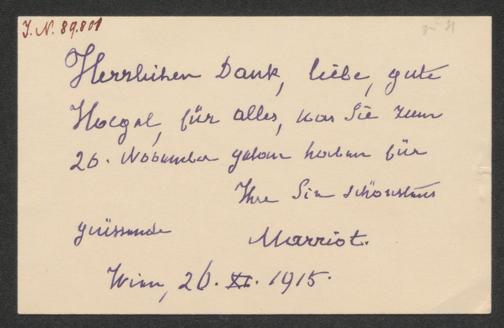 J. N. 89.801
Herzlichen Dank, liebe, gute
für alles, was Sie zum
20. November getan haben für
Ihre Sie schönstens
grüssende Marriot.
Wien, 26. XI. 1915.